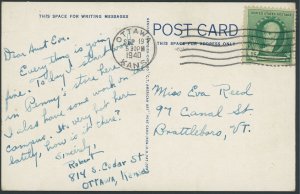 THIS SPACE FOR WRITING MESSAGES
POST CARD
THIS SPACE FOR ADDRESS ONLY
OTTAWA
SEP 19
5 30 PM
1940
KANS.
Dear Aunt Eva:
Everything is going
fine. Today I started
in Penny's store here
I also have some work on
campus. It's very hot here
lately, how is it there?
Sincerely,
Robert
814 S. Cedar St
OTTAWA, Kansas
Miss Eva Reed
97 Canal St.
Brattleboro,
VT.